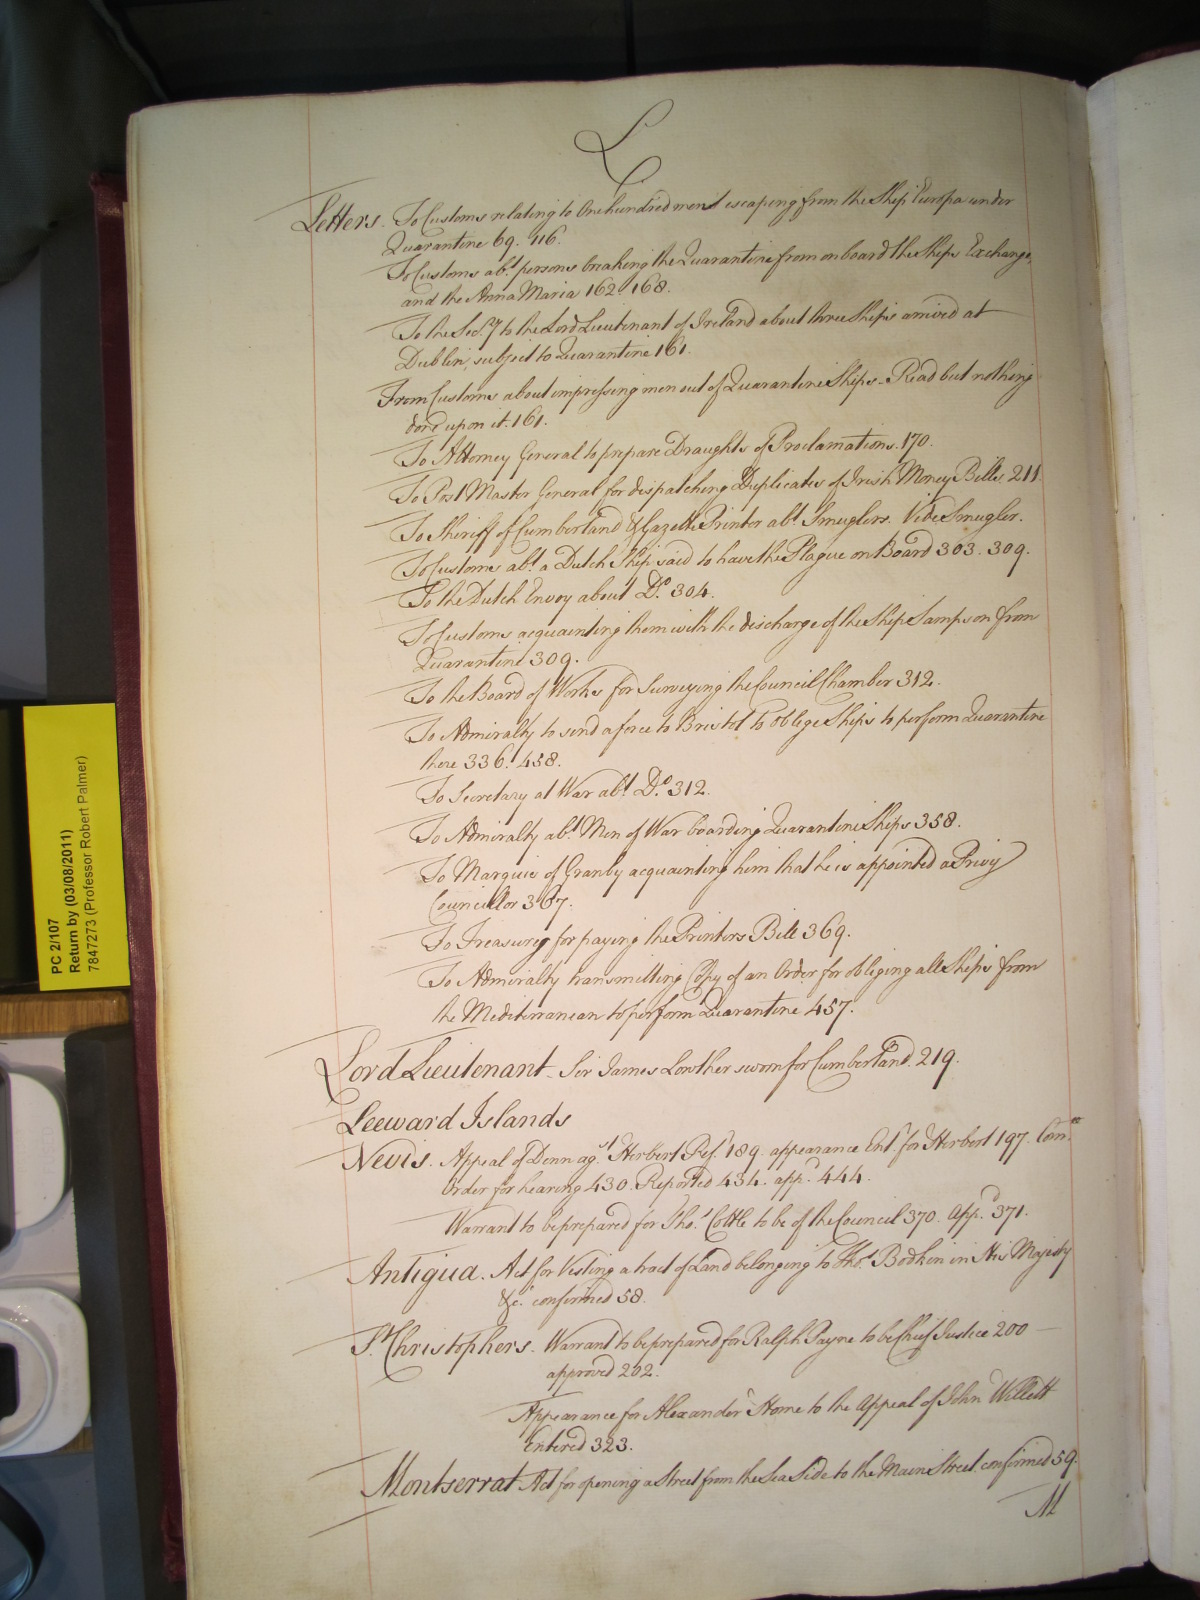 L
Letters. To Customs relating to One hundred men escaping from the Ship Europa under
Quarantine 69. 116.
To Customs abt. persons breaking the Quarantine from on board the Ships Exchange,
and the Anna Maria 162. 168.
To the Secry. to the Lord Lieutenant of Ireland about three Ships arrived at
Dublin, subject to Quarantine 161.
From Customs about impressing men out of Quarantine Ships - Read but nothing
done upon it. 161.
To Attorney General to prepare Draughts of Proclamations. 170.
To Post Master General for dispatching Duplicates of Irish Money Bills. 211.
To Sheriff of Cumberland & Gazette Printer abt. Smuglers. Vide Smugler.
To Customs abt. a Dutch Ship said to have the Plague on Board 303. 309.
To the Dutch Envoy about Do. 304.
To Customs acquainting them with the discharge of the Ship Sampson from
Quarantine 309.
To the Board of Works for Surveying the Council Chamber 312.
To Admiralty to send a force to Bristol to oblege Ships to perform Quarantine
there 336. 458.
To Secretary at War abt. Do. 312.
To Admiralty abt. Men of War boarding Quarantine Ships 358.
To Marquis of Granby acquainting him that he is appointed a Privy
Councillor 367.
To Treasury for paying the Printers Bill 369.
To Admiralty transmitting Copy of an Order for obliging all Ships from
the Mediterranean to perform Quarantine 457.
Lord Lieutenant - Sir James Lowther sworn for Cumberland. 219.
Leeward Islands
Nevis. Appeal of Dunn agst. Herbert Ref. 189. appearance Entd. for Herbert 197. Comee
Order for hearing 430. Reported 434. appd. 444.
Warrant to be prepared for Thos. Cottle to be of the Council 370. Appd. 371.
Antigua. Act for Vesting a tract of Land belonging to Thos. Bodkin in His Majesty
&c. confirmed 58.
St. Christophers. Warrant to be prepared for Ralph Payne to be Chief Justice 200 -
approved 202.
Appearance for Alexander Home to the Appeal of John Willett
Entered 323.
Montserrat Act for opening a Street from the Sea Side to the Main Street confirmed 59.
M
PC 2/107
Return by (03/08/2011)
7847273 (Professor Robert Palmer)